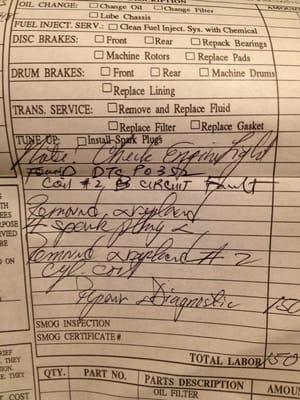 DESCRIPTION
OIL CHANGE: □ Change Oil □ Change Filter
□ Lube Chassis
FUEL INJECT. SERV.: □ Clean Fuel Inject. Sys. with Chemical
DISC BRAKES: □ Front □ Rear □ Repack Bearings
□ Machine Rotors □ Replace Pads
DRUM BRAKES: □ Front □ Rear □ Machine Drums
□ Replace Lining
TRANS. SERVICE: □ Remove and Replace Fluid
□ Replace Filter □ Replace Gasket
TUNE UP: □ Install Spark Plugs
Note: Check Engine light
Found DTC P0352
Coil #2 B CIRCUIT Fault
Removed & replaced
4 spark plug &
removed & replaced # 2
cyl. coil
Repair & Diagnostic 150
SMOG INSPECTION
SMOG CERTIFICATE#
TOTAL LABOR 150
QTY. PART NO. PARTS DESCRIPTION AMOU
OIL FILTER